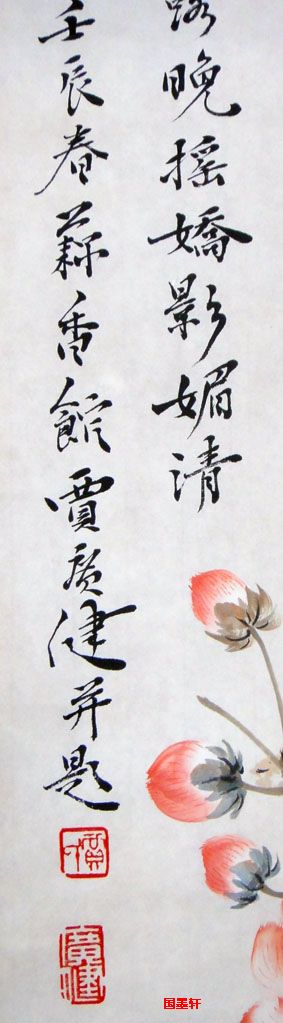 晚摇嬌影媚清
壬辰春蘇香館賈廣健并題
廣健
国墨轩